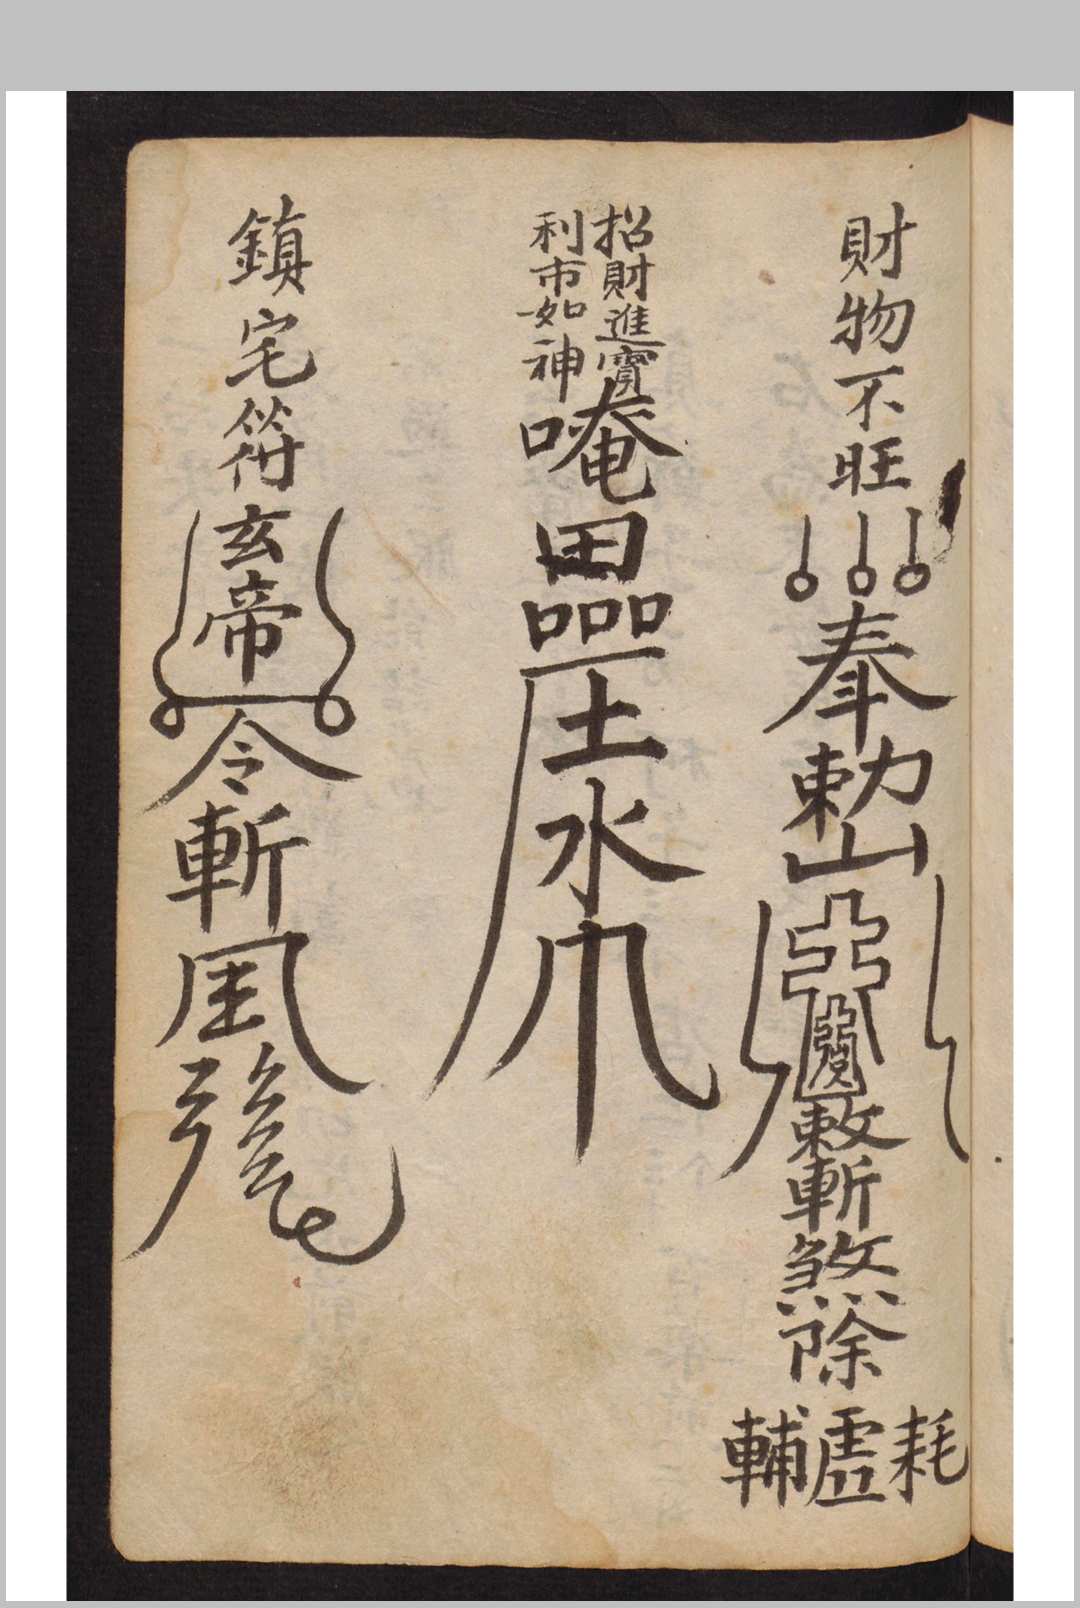 財物不旺
奉勅
敕斬煞除
耗虛輔
招財進寶
利市如神
唵
田
土水
鎮宅符
玄帝
令斬